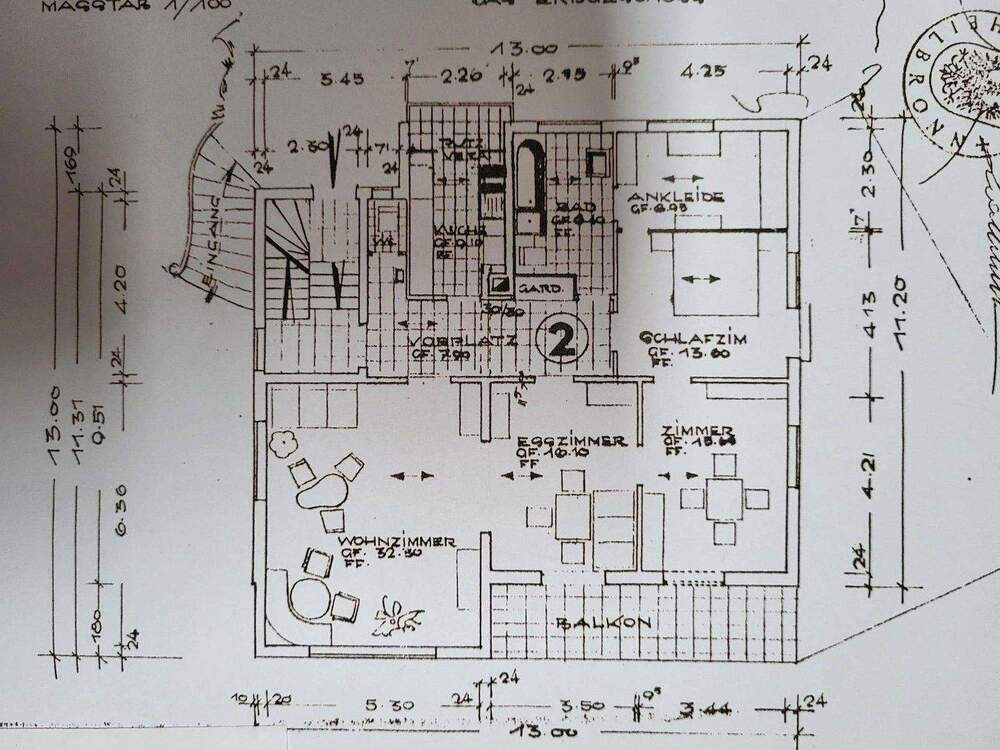 MASSTAB 1/100
DAS ERDGESCHOSS
HEILBRONN
13.00
24
3.45
7
2.26
24
2.95
9⁵
4.25
24
24
2.30
24
71
24
24
EINGANG
PUTZ
KÜCHE
GF. 9.10
FF.
BAD
GF. 8.40
FF.
ANKLEIDE
GF. 8.95
GARD.
30/30
VORPLATZ
GF. 7.90
2
SCHLAFZIM
GF. 13.60
FF.
ESSZIMMER
GF. 16.10
FF
ZIMMER
GF.
FF.
WOHNZIMMER
GF. 32.30
FF.
BALKON
13.00
11.31
9.51
1.69
24
4.20
24
6.36
1.80
24
24
2.30
7
4.13
4.21
24
11.20
10
20
5.30
24
24
3.50
9⁵
3.44
24
13.00